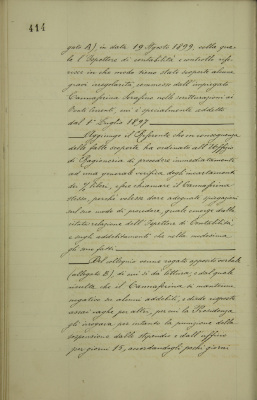 414
gato B), in data 19 Agosto 1899, colla qua-
le l'Ispettore di contabilità e controllo rife-
risce in che modo siano state scoperte alcune
gravi irregolarità, commesse dall'impiegato
Cannafrina Serafino nelle scritturazioni ai
Conti Correnti, cui è specialmente addetto
dal 1° Luglio 1897.
Aggiunge il Referente che in conseguenza
della fatta scoperta ha ordinato all'Ufficio
di Ragioneria di procedere immediatamente
ad una generale verifica degli incartamenti
dei libri, e fece chiamare il Cannafrina
stesso, perché volesse dare adeguate spiegazioni
sul suo modo di procedere, quale emerge dalla
citata relazione dell'Ispettore di Contabilità,
e sugli addebitamenti che nella medesima
gli sono fatti.
Del colloquio venne rogato apposito verbale
(allegato B), di cui si dà lettura, e dal quale
risulta che il Cannafrina si mantenne
negativo su alcuni addebiti, e diede risposte
assai vaghe per altri, per cui la Presidenza
gli irrogava per intanto la punizione della
sospensione dallo stipendio e dall'ufficio
per giorni 15, accordandogli pochi giorni